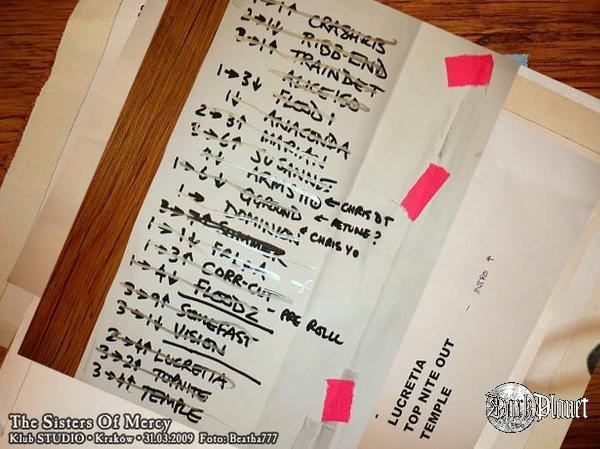 CRASH+B
2→1↓ RIBB-END
3→1↑ TRAIN/DET
ALICE/GO
1→3↓ FLOOD 1
1↓ ANACONDA
2→3↑ MARIAN
SUZANNE
ARMS ← CHRIS DT
GGROUND ← RETUNE?
1→ DOMINION CHRIS VO
SUMMER
CORR-CUT
1→4↓ FLOOD 2 - PRE ROLL
SOMEFAST
3→1↓ VISION
2→1↑ LUCRETIA
3→2↑ TOPNITE
TEMPLE
- INTRO ↑
LUCRETIA
TOP NITE OUT
TEMPLE
The Sisters Of Mercy
Klub STUDIO • Kraków • 31.03.2009 Foto: Beatha777
DarkPlanet